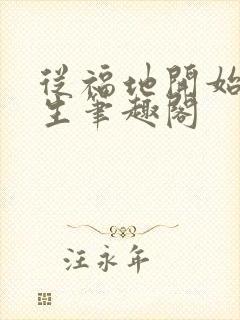 從福地開始
生筆趣閣
汪永年